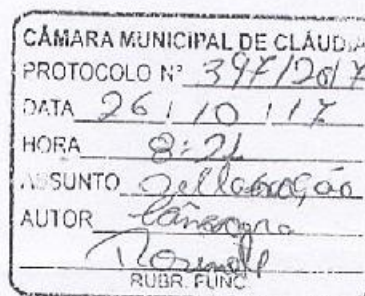 CÂMARA MUNICIPAL DE CLÁUDIA
PROTOCOLO N° 397/2017
DATA 26 / 10 / 17
HORA 8:21
ASSUNTO
AUTOR
RUBR. FUNC.